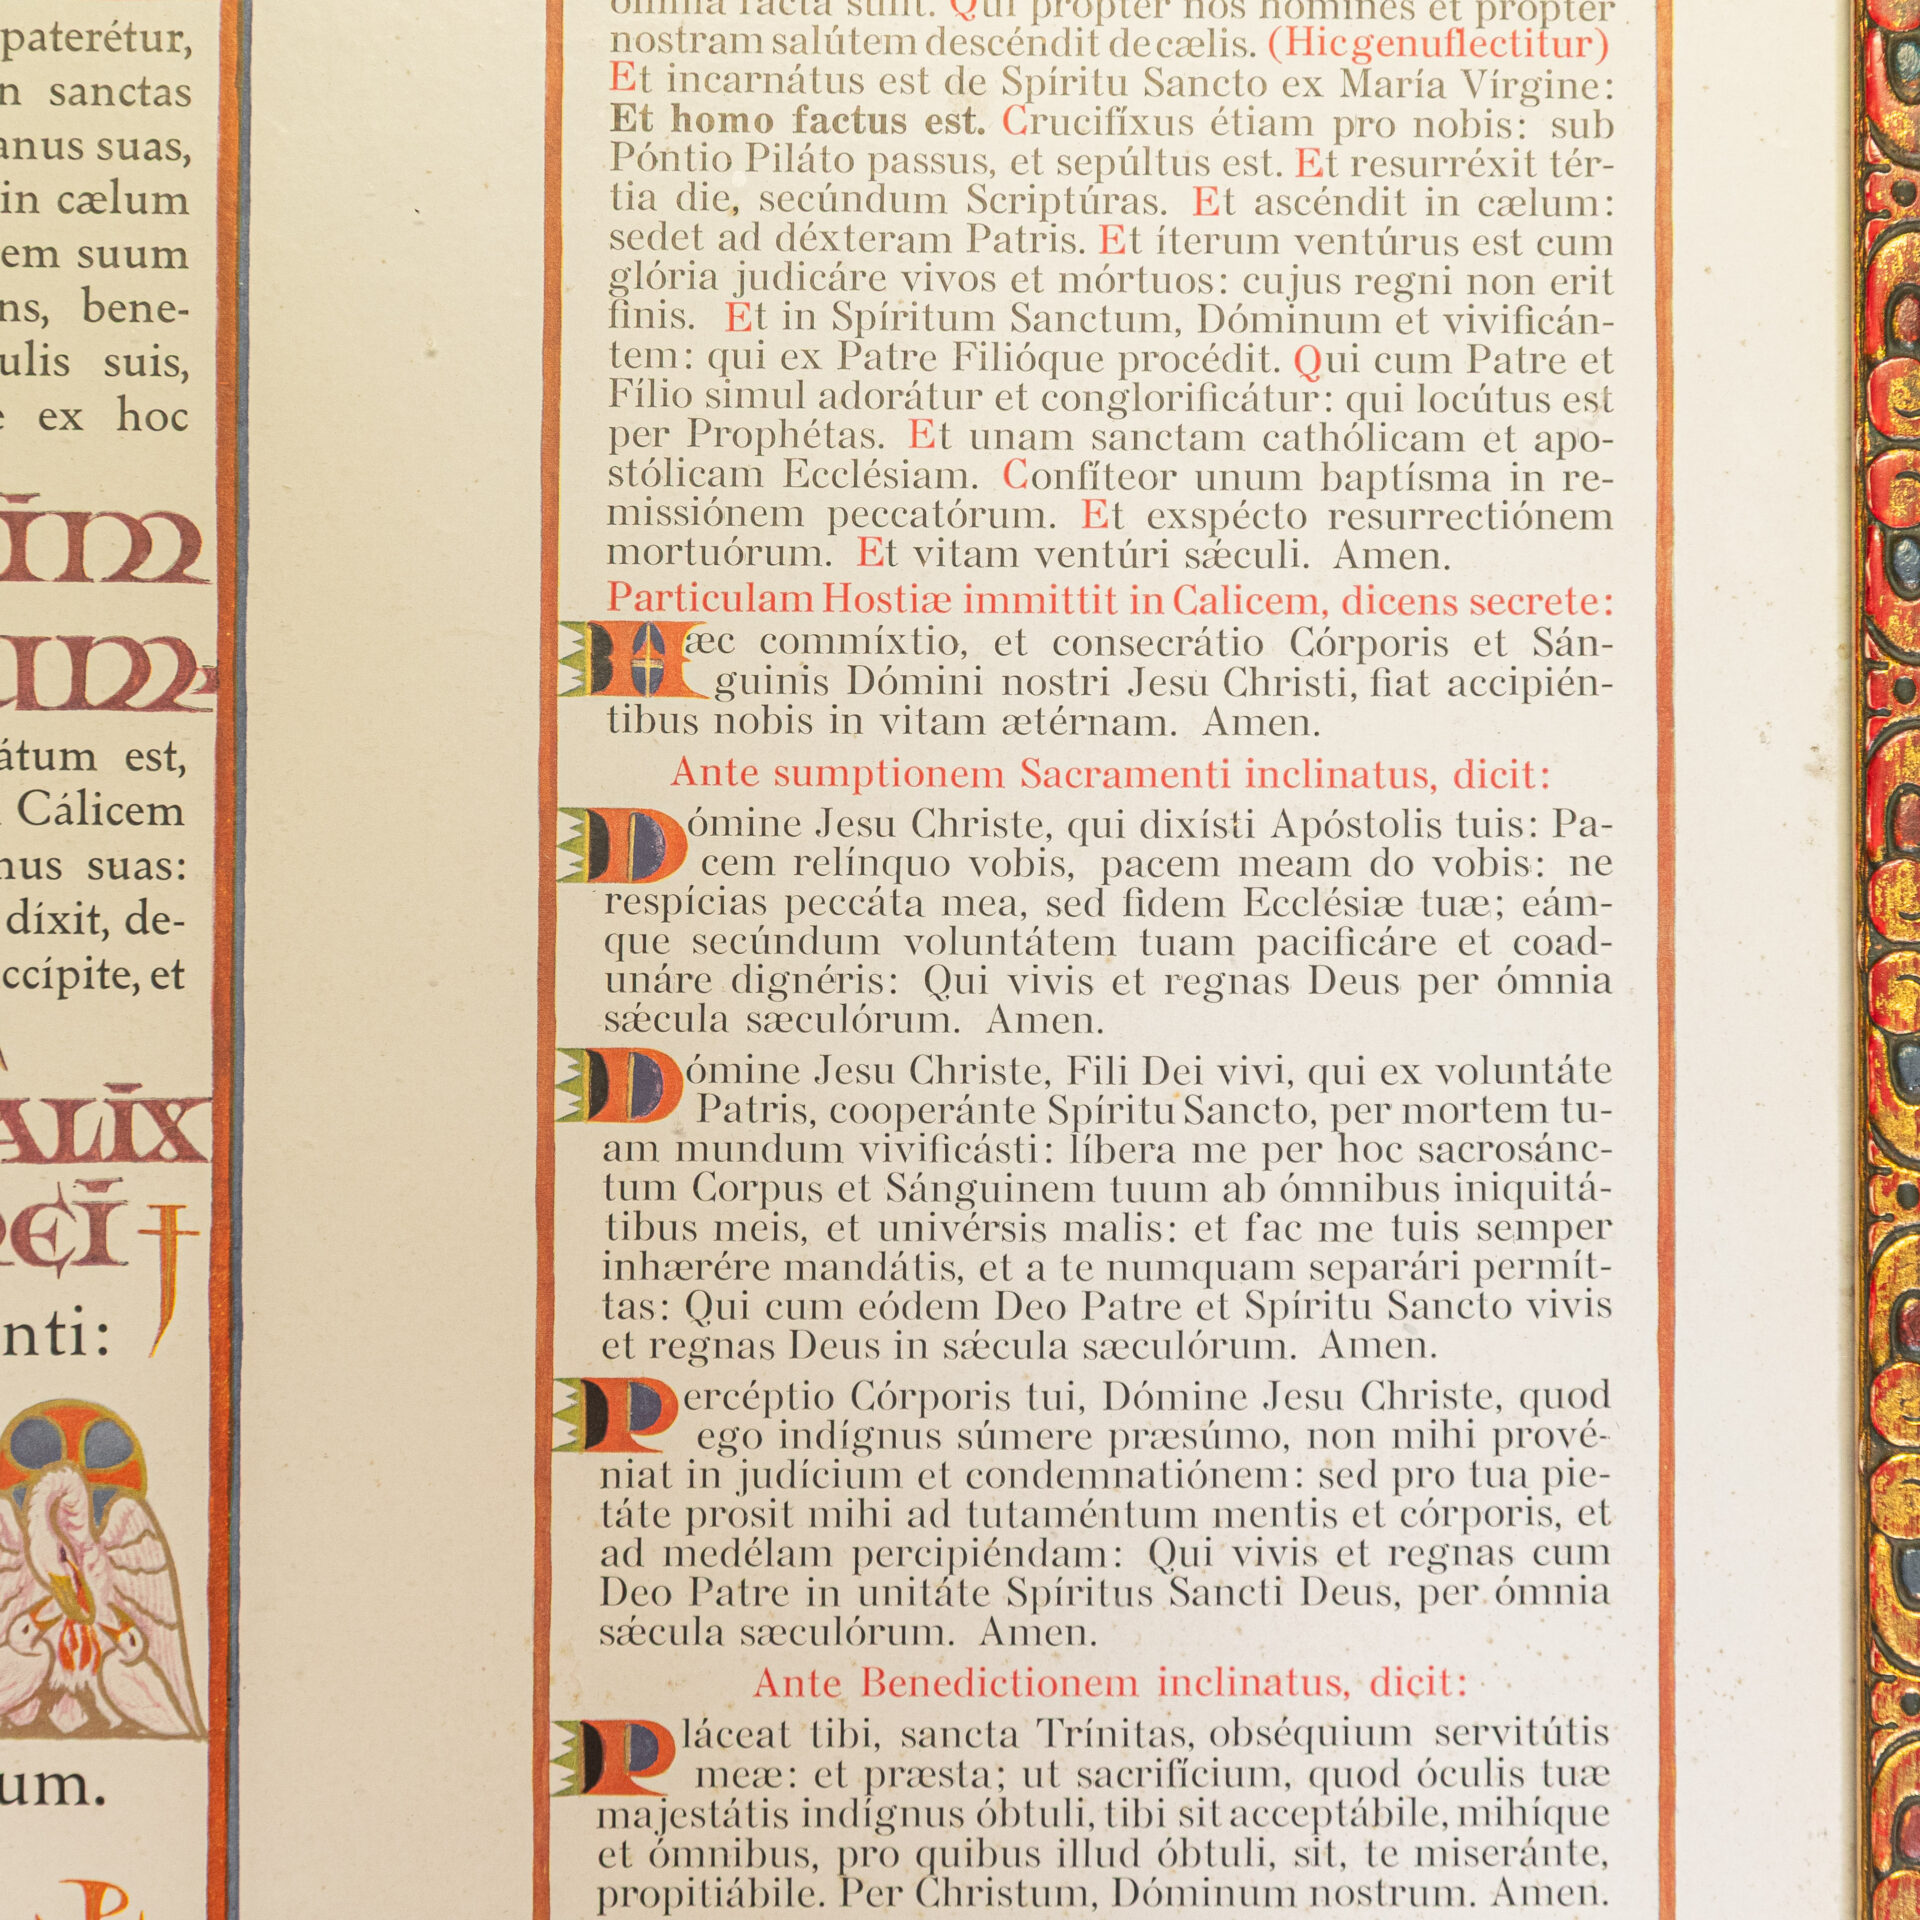 paterétur,
sanctas
suas,
in cælum
suum
bene-
suis,
ex hoc
est,
Cálicem
suas:
díxit, de-
et
omnia facta sunt. Qui propter nos homines et propter
nostram salútem descéndit de cælis. (Hic genuflectitur)
Et incarnátus est de Spíritu Sancto ex María Vírgine:
Et homo factus est. Crucifíxus étiam pro nobis: sub
Póntio Piláto passus, et sepúltus est. Et resurréxit tér-
tia die, secúndum Scriptúras. Et ascéndit in cælum:
sedet ad déxteram Patris. Et íterum ventúrus est cum
glória judicáre vivos et mórtuos: cujus regni non erit
finis. Et in Spíritum Sanctum, Dóminum et vivificán-
tem: qui ex Patre Filióque procédit. Qui cum Patre et
Fílio simul adorátur et conglorificátur: qui locútus est
per Prophétas. Et unam sanctam cathólicam et apo-
stólicam Ecclésiam. Confíteor unum baptísma in re-
missiónem peccatórum. Et exspécto resurrectiónem
mortuórum. Et vitam ventúri sǽculi. Amen.
Particulam Hostiæ immittit in Calicem, dicens secrete:
Hæc commíxtio, et consecrátio Córporis et Sán-
guinis Dómini nostri Jesu Christi, fiat accipién-
tibus nobis in vitam ætérnam. Amen.
Ante sumptionem Sacramenti inclinatus, dicit:
Dómine Jesu Christe, qui dixísti Apóstolis tuis: Pa-
cem relínquo vobis, pacem meam do vobis: ne
respícias peccáta mea, sed fidem Ecclésiæ tuæ; eám-
que secúndum voluntátem tuam pacificáre et coad-
unáre dignéris: Qui vivis et regnas Deus per ómnia
sǽcula sæculórum. Amen.
Dómine Jesu Christe, Fili Dei vivi, qui ex voluntáte
Patris, cooperánte Spíritu Sancto, per mortem tu-
am mundum vivificásti: líbera me per hoc sacrosánc-
tum Corpus et Sánguinem tuum ab ómnibus iniquitá-
tibus meis, et univérsis malis: et fac me tuis semper
inhærére mandátis, et a te numquam separári permít-
tas: Qui cum eódem Deo Patre et Spíritu Sancto vivis
et regnas Deus in sǽcula sæculórum. Amen.
Percéptio Córporis tui, Dómine Jesu Christe, quod
ego indígnus súmere præsúmo, non mihi prové-
niat in judícium et condemnatiónem: sed pro tua pie-
táte prosit mihi ad tutaméntum mentis et córporis, et
ad medélam percipiéndam: Qui vivis et regnas cum
Deo Patre in unitáte Spíritus Sancti Deus, per ómnia
sǽcula sæculórum. Amen.
Ante Benedictionem inclinatus, dicit:
Pláceat tibi, sancta Trínitas, obséquium servitútis
meæ: et præsta; ut sacrifícium, quod óculis tuæ
majestátis indígnus óbtuli, tibi sit acceptábile, mihíque
et ómnibus, pro quibus illud óbtuli, sit, te miseránte,
propitiábile. Per Christum, Dóminum nostrum. Amen.